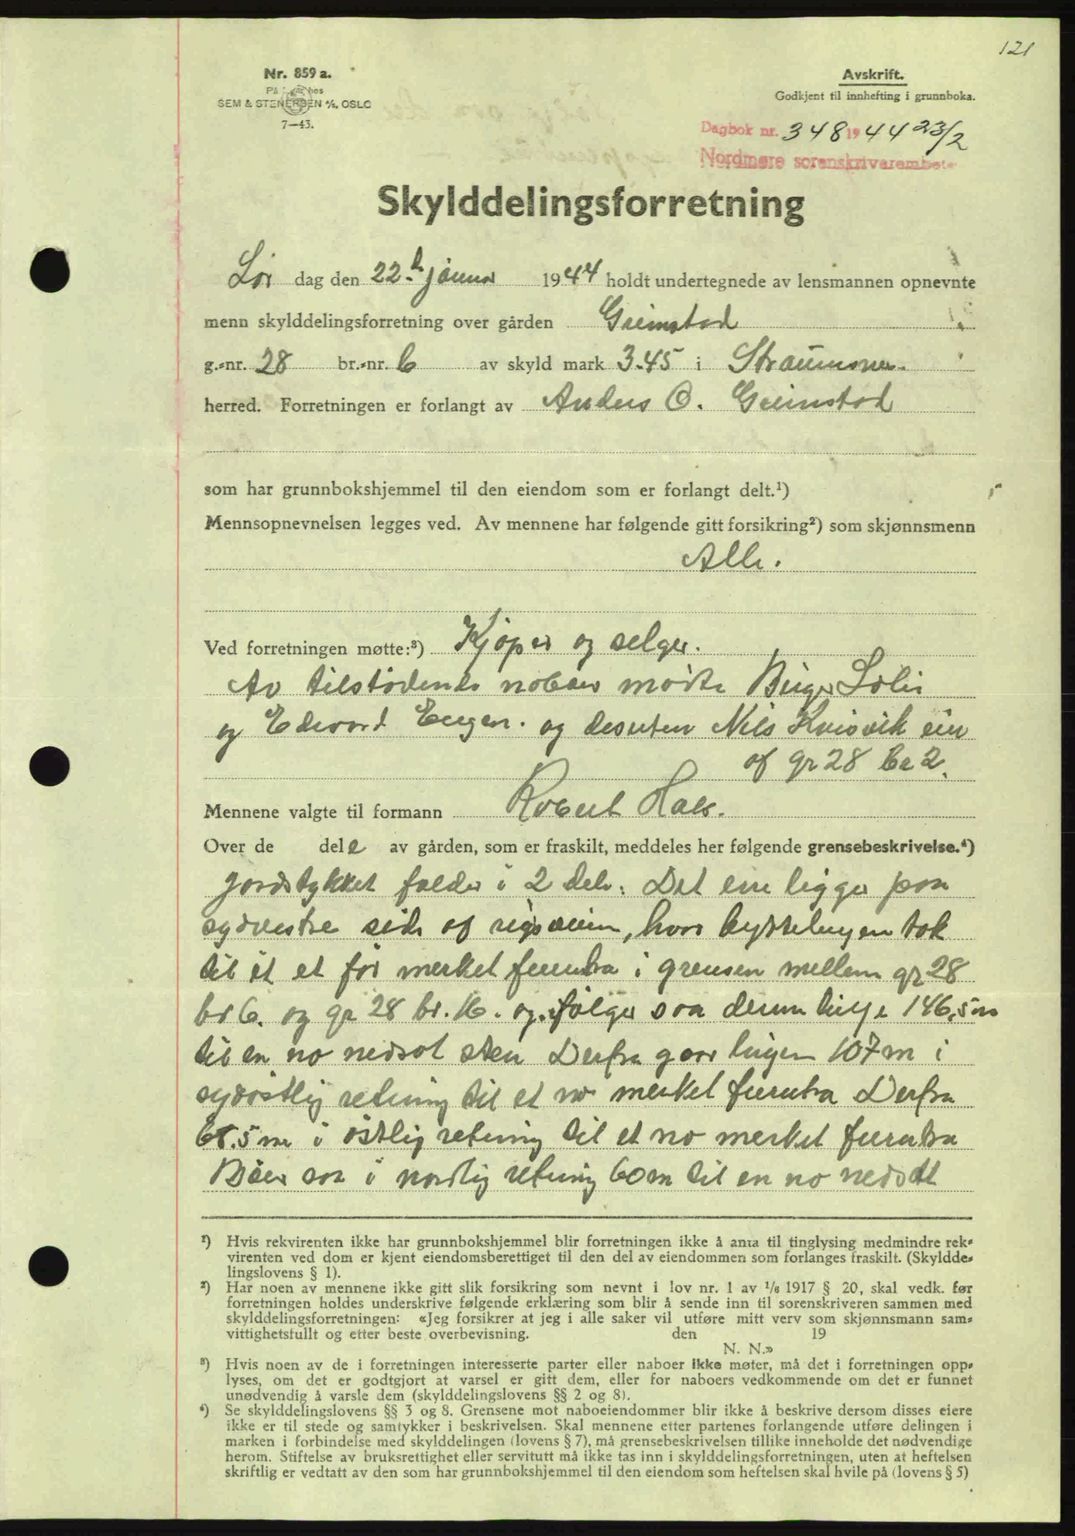 121
Nr. 859 a.
På lager hos
SEM & STENERSEN A/S, OSLO
7-43.
Avskrift.
Godkjent til innhefting i grunnboka.
Dagbok nr. 348 1944 23/2
Nordmøre sorenskriverembete
Skylddelingsforretning
Lør dag den 22. januar 1944 holdt undertegnede av lensmannen opnevnte
menn skylddelingsforretning over gården Grimstad
g.-nr. 28 br.-nr. 6 av skyld mark 3.45 i Straumsnes
herred. Forretningen er forlangt av Anders O. Grimstad
som har grunnbokshjemmel til den eiendom som er forlangt delt.¹)
Mennsopnevnelsen legges ved. Av mennene har følgende gitt forsikring²) som skjønnsmenn
Alle.
Ved forretningen møtte:³) Kjøper og selger.
Av tilstødende naboer møtte Birger
og Edvard og desuten Nils Kvisvik eier
af gr 28 br 2.
Mennene valgte til formann Robert Hals.
Over de dele av gården, som er fraskilt, meddeles her følgende grensebeskrivelse.⁴)
Jordstykket falder i 2 dele: Det ene ligger paa
sydvestre side af, hvor byttelinjen tok
til i et før merket furutre i grensen mellem gr 28
br 6. og gr 28 br. 16. og følger saa denne linje 146,5 m
til en no nedsat sten Derfra gaar linjen 107 m i
sydøstlig retning til et no merket furutre Derfra
68.5 m i østlig retning til et no merket furutre
Bøier saa i nordlig retning 60 m til en no nedsat
¹) Hvis rekvirenten ikke har grunnbokshjemmel blir forretningen ikke å anta til tinglysing medmindre rek-
virenten ved dom er kjent eiendomsberettiget til den del av eiendommen som forlanges fraskilt. (Skyldde-
lingslovens § 1).
²) Har noen av mennene ikke gitt slik forsikring som nevnt i lov nr. 1 av 1/6 1917 § 20, skal vedk. før
forretningen holdes underskrive følgende erklæring som blir å sende inn til sorenskriveren sammen med
skylddelingsforretningen: «Jeg forsikrer at jeg i alle saker vil utføre mitt verv som skjønnsmann sam-
vittighetsfullt og etter beste overbevisning. den 19
N. N.»
³) Hvis noen av de i forretningen interesserte parter eller naboer ikke møter, må det i forretningen opp-
lyses, om det er godtgjort at varsel er gitt dem, eller for naboers vedkommende om det er funnet
unødvendig å varsle dem (skylddelingslovens §§ 2 og 8).
⁴) Se skylddelingslovens §§ 3 og 8. Grensene mot naboeiendommer blir ikke å beskrive dersom disses eiere
ikke er til stede og samtykker i beskrivelsen. Skal mennene etter partenes forlangende utføre delingen i
marken i forbindelse med skylddelingen (lovens § 7), må grensebeskrivelsen tillike inneholde det nødvendige
herom. Stiftelse av bruksrettighet eller servitutt må ikke tas inn i skylddelingsforretningen, uten at heftelsen
skriftlig er vedtatt av den som har grunnbokshjemmel til den eiendom som heftelsen skal hvile på (lovens § 5)